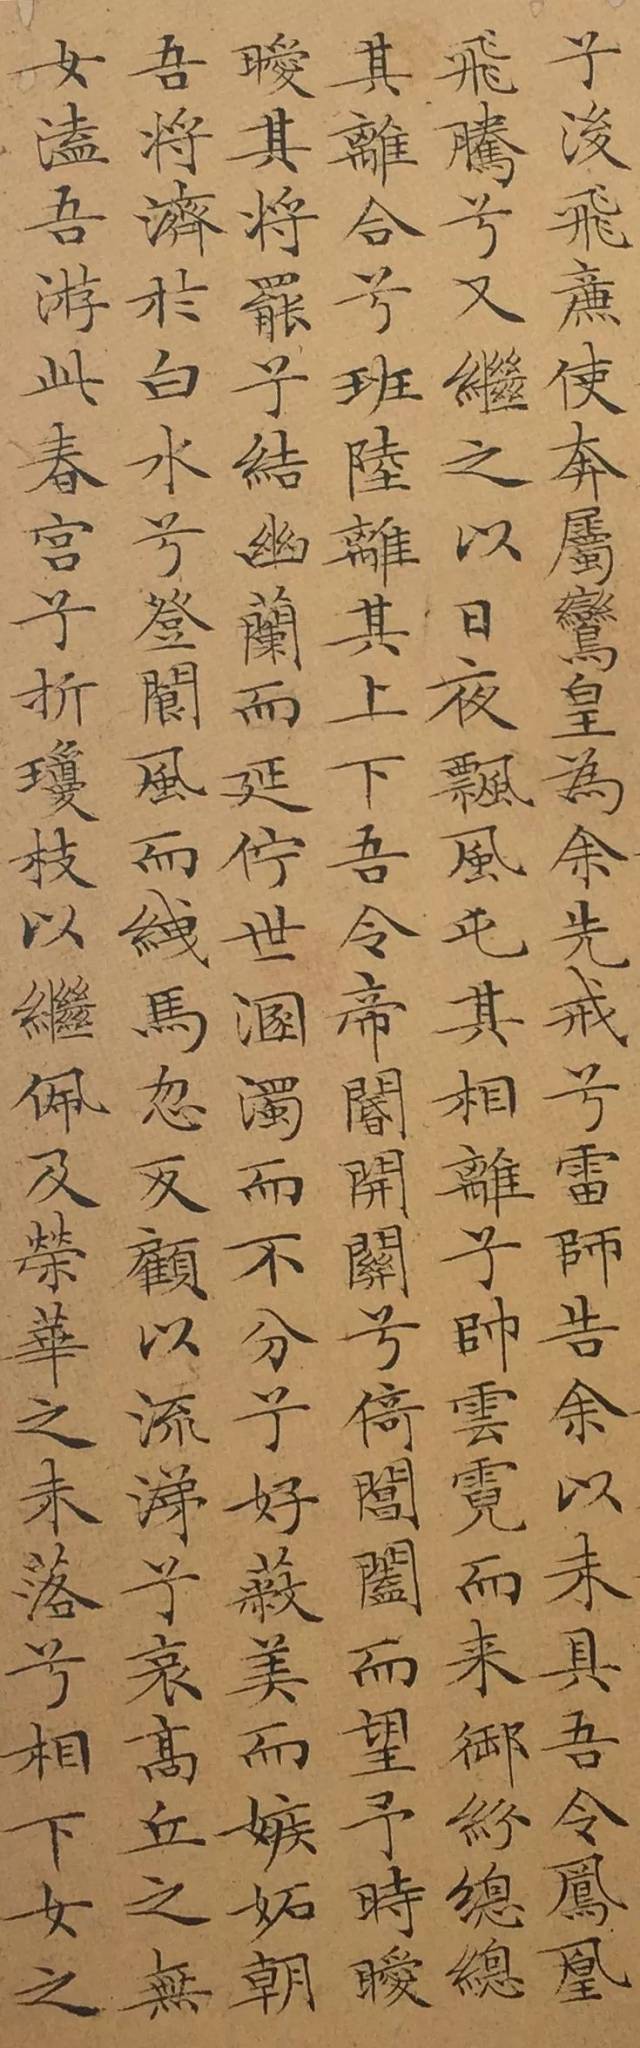 兮後飛廉使奔屬鸞皇為余先戒兮雷師告余以未具吾令鳳凰
飛騰兮又繼之以日夜飄風屯其相離兮帥雲霓而来御紛總總
其離合兮班陸離其上下吾令帝閽開關兮倚閶闔而望予時曖
曖其将罷兮結幽蘭而延佇世溷濁而不分兮好蔽美而嫉妬朝
吾将濟於白水兮登閬風而絏馬忽反顧以流涕兮哀高丘之無
女溘吾游此春宫兮折瓊枝以繼佩及榮華之未落兮相下女之